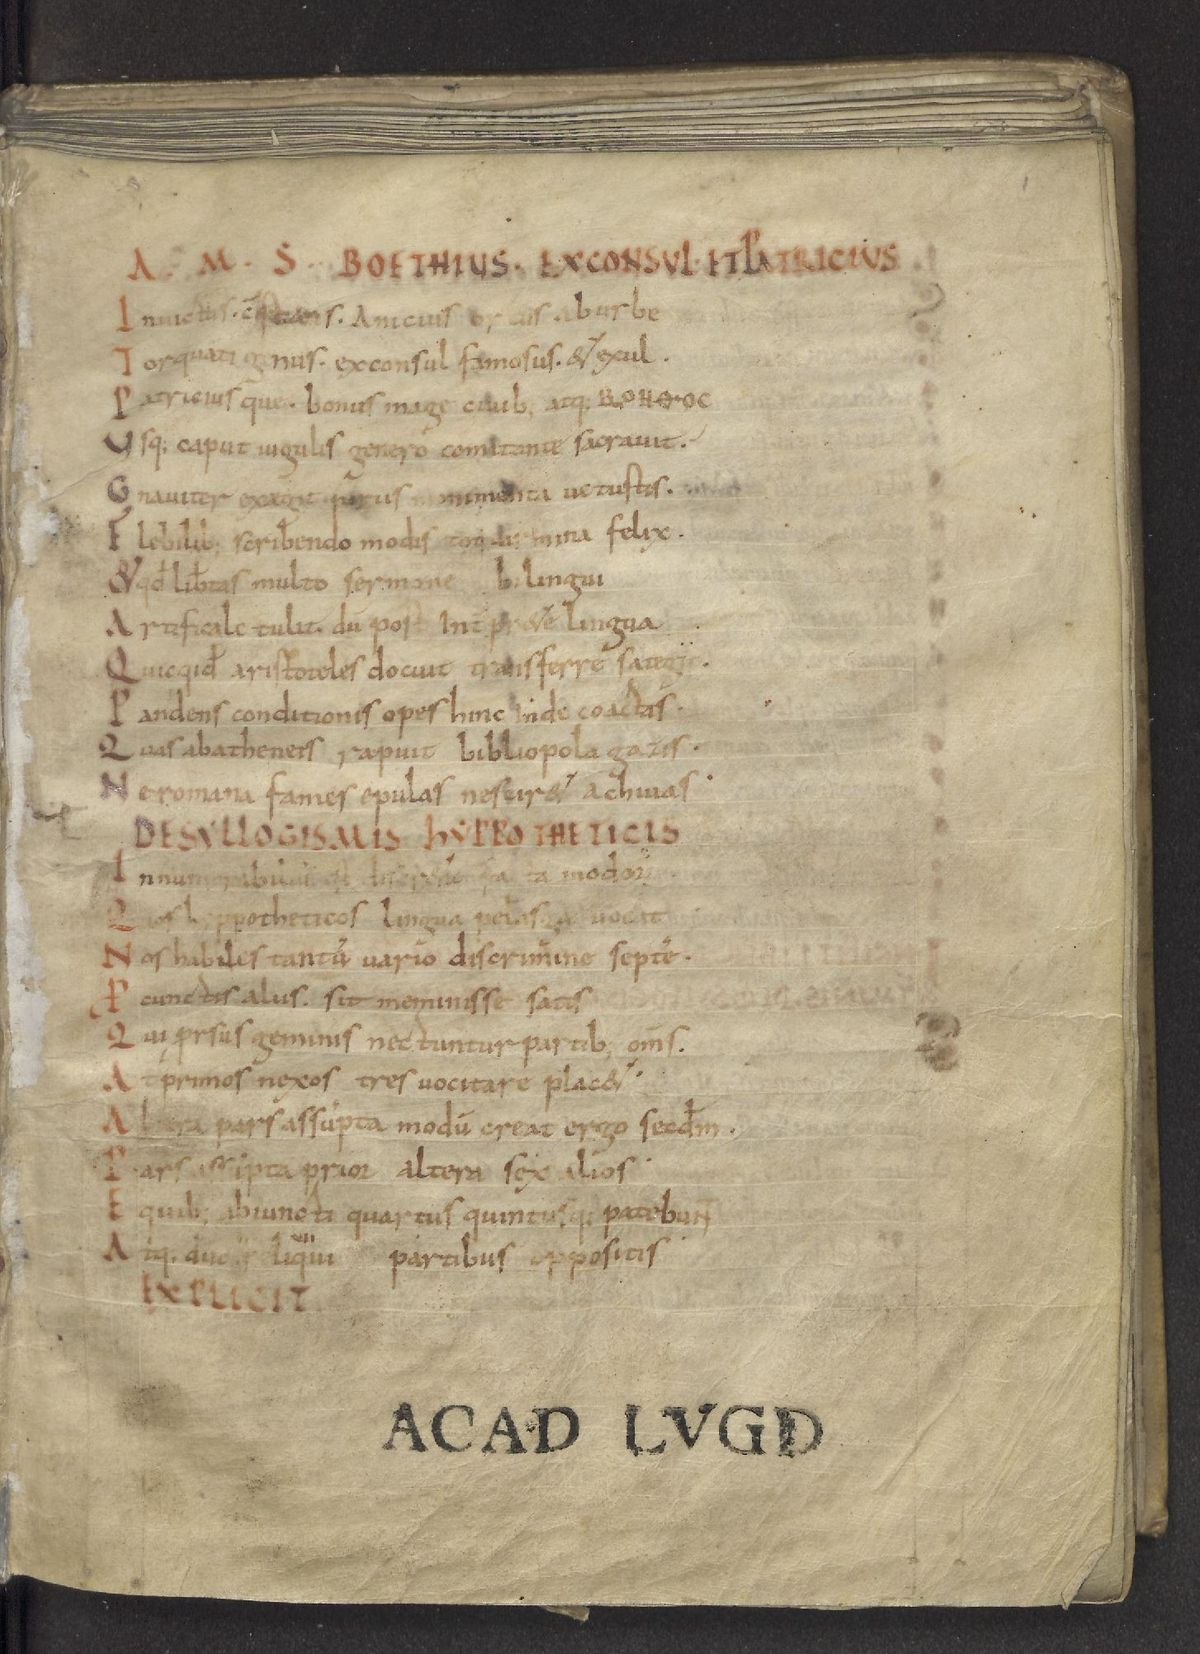 A. M. S. BOETHIUS. EXCONSUL. ET PATRICIUS
Anicius ab urbe
Torquati genus. exconsul famosus. & exul.
Patriciusque. bonus mage ciuib; atq: ΒΟΗΘΟC
Usq; caput iugulis genero comitante sacrauit.
Gnauiter uetustis.
Flebilib; scribendo modis felix.
& qđ multo sermone bilingui
Artificale tulit. dū post lingua
Quicqid aristoteles docuit transferre sategit.
Pandens conditionis opes hinc inde coactas.
Quas abatheneis rapuit bibliopola gazis.
Ne romana fames epulas nescir& achiuas
DE SYLLOGISMIS hYPPOTHETICIS
Innumerabilium modorū
Quos hyppotheticos lingua pelasga uocat
Nos habiles tantū uario discrimine septē.
P cunctis aliis. sit meminisse satis
Qui prsus geminis nectuntur partib; om̄s.
At primos nexos tres uocitare plac&
Altera pars assūpta modū creat ergo secdm̄.
Pars assūpta prior altera sex alios
E quib; abiuncti quartus quintusq; patebunt
Atq. duo reliqui partibus oppositis
EXPLICIT
ACAD LVGD